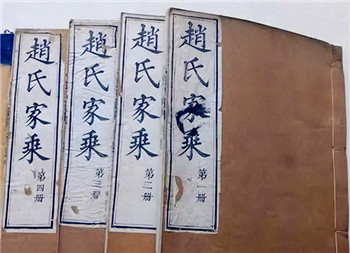 趙氏家乘
第一册
趙氏家乘
第二册
趙氏家乘
第三册
趙氏家乘
第四册